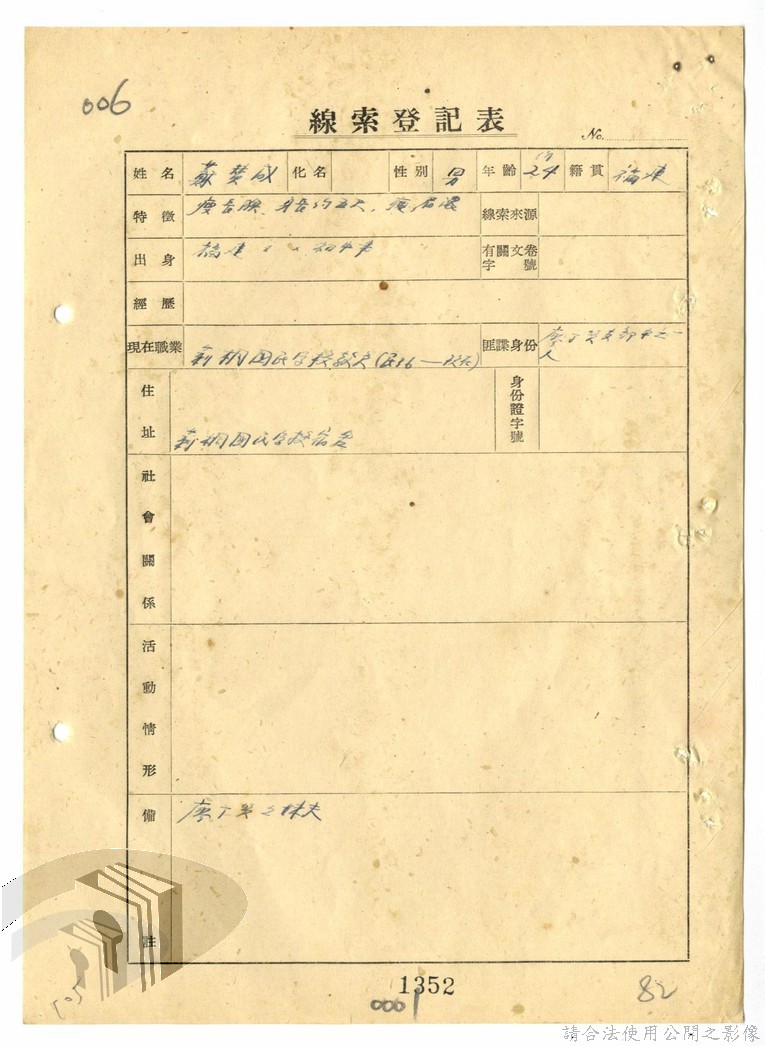 006
線索登記表
No.
姓名 蘇 成 化名 性別 男 年齡 24 籍貫 福建
特徵 瘦長臉 身長約五尺 線索來源
出身 福建 有關文卷字號
經歷
現在職業 莿桐國民學校教員 匪諜身份 廖 支部 之一人
住址 莿桐國民學校宿舍 身份證字號
社會關係
活動情形
備註 廖 之妹夫
1352
0001
82
105
請合法使用公開之影像